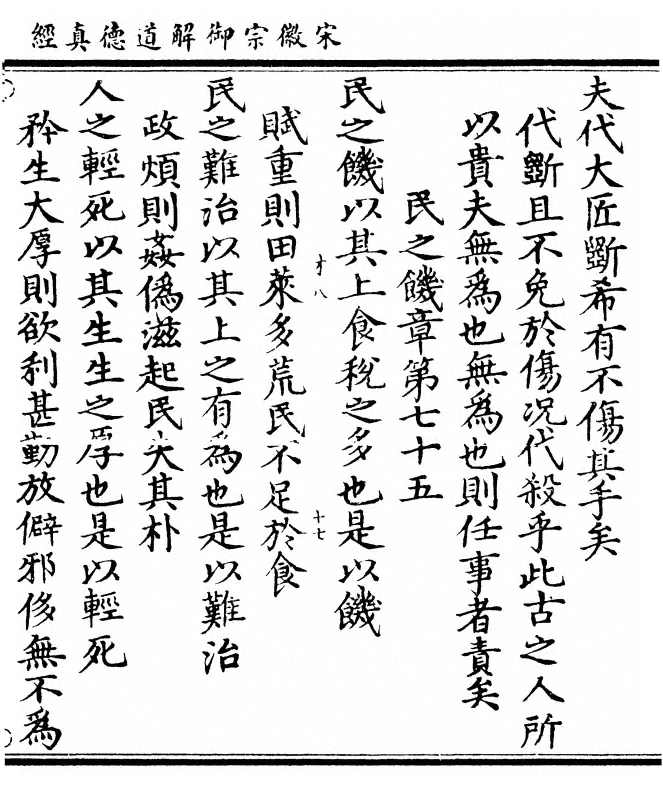 宋徽宗御解道德真經
夫代大匠斲希有不傷其手矣
代斲且不免於傷況代殺乎此古之人所
以貴夫無爲也無爲也則任事者責矣
民之饑章第七十五
民之饑以其上食稅之多也是以饑
賦重則田萊多荒民不足於食
才八
十七
民之難治以其上之有爲也是以難治
政煩則姦僞滋起民失其朴
人之輕死以其生生之厚也是以輕死
矜生大厚則欲利甚勤放僻邪侈無不爲